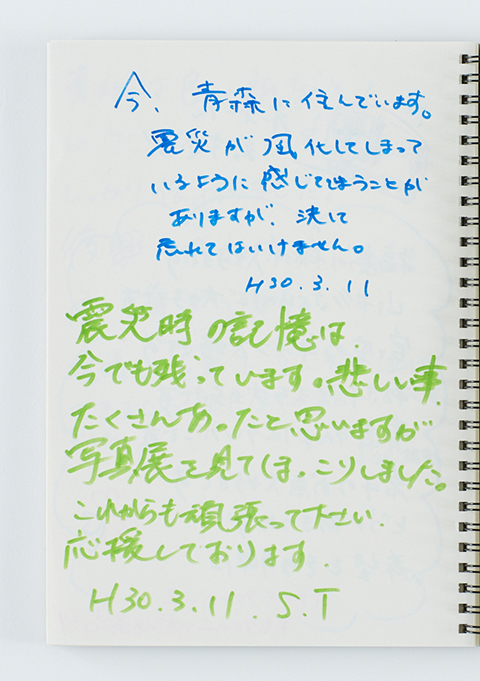 今、青森に住んでいます。
震災が風化してしまって
いるように感じてしまうことが
ありますが、決して
忘れてはいけません。
H30.3.11
震災時の記憶は、
今でも残っています。悲しい事、
たくさんあったと思いますが
写真展を見てほっこりしました。
これからも頑張って下さい.
応援しております.
H30.3.11. S.T